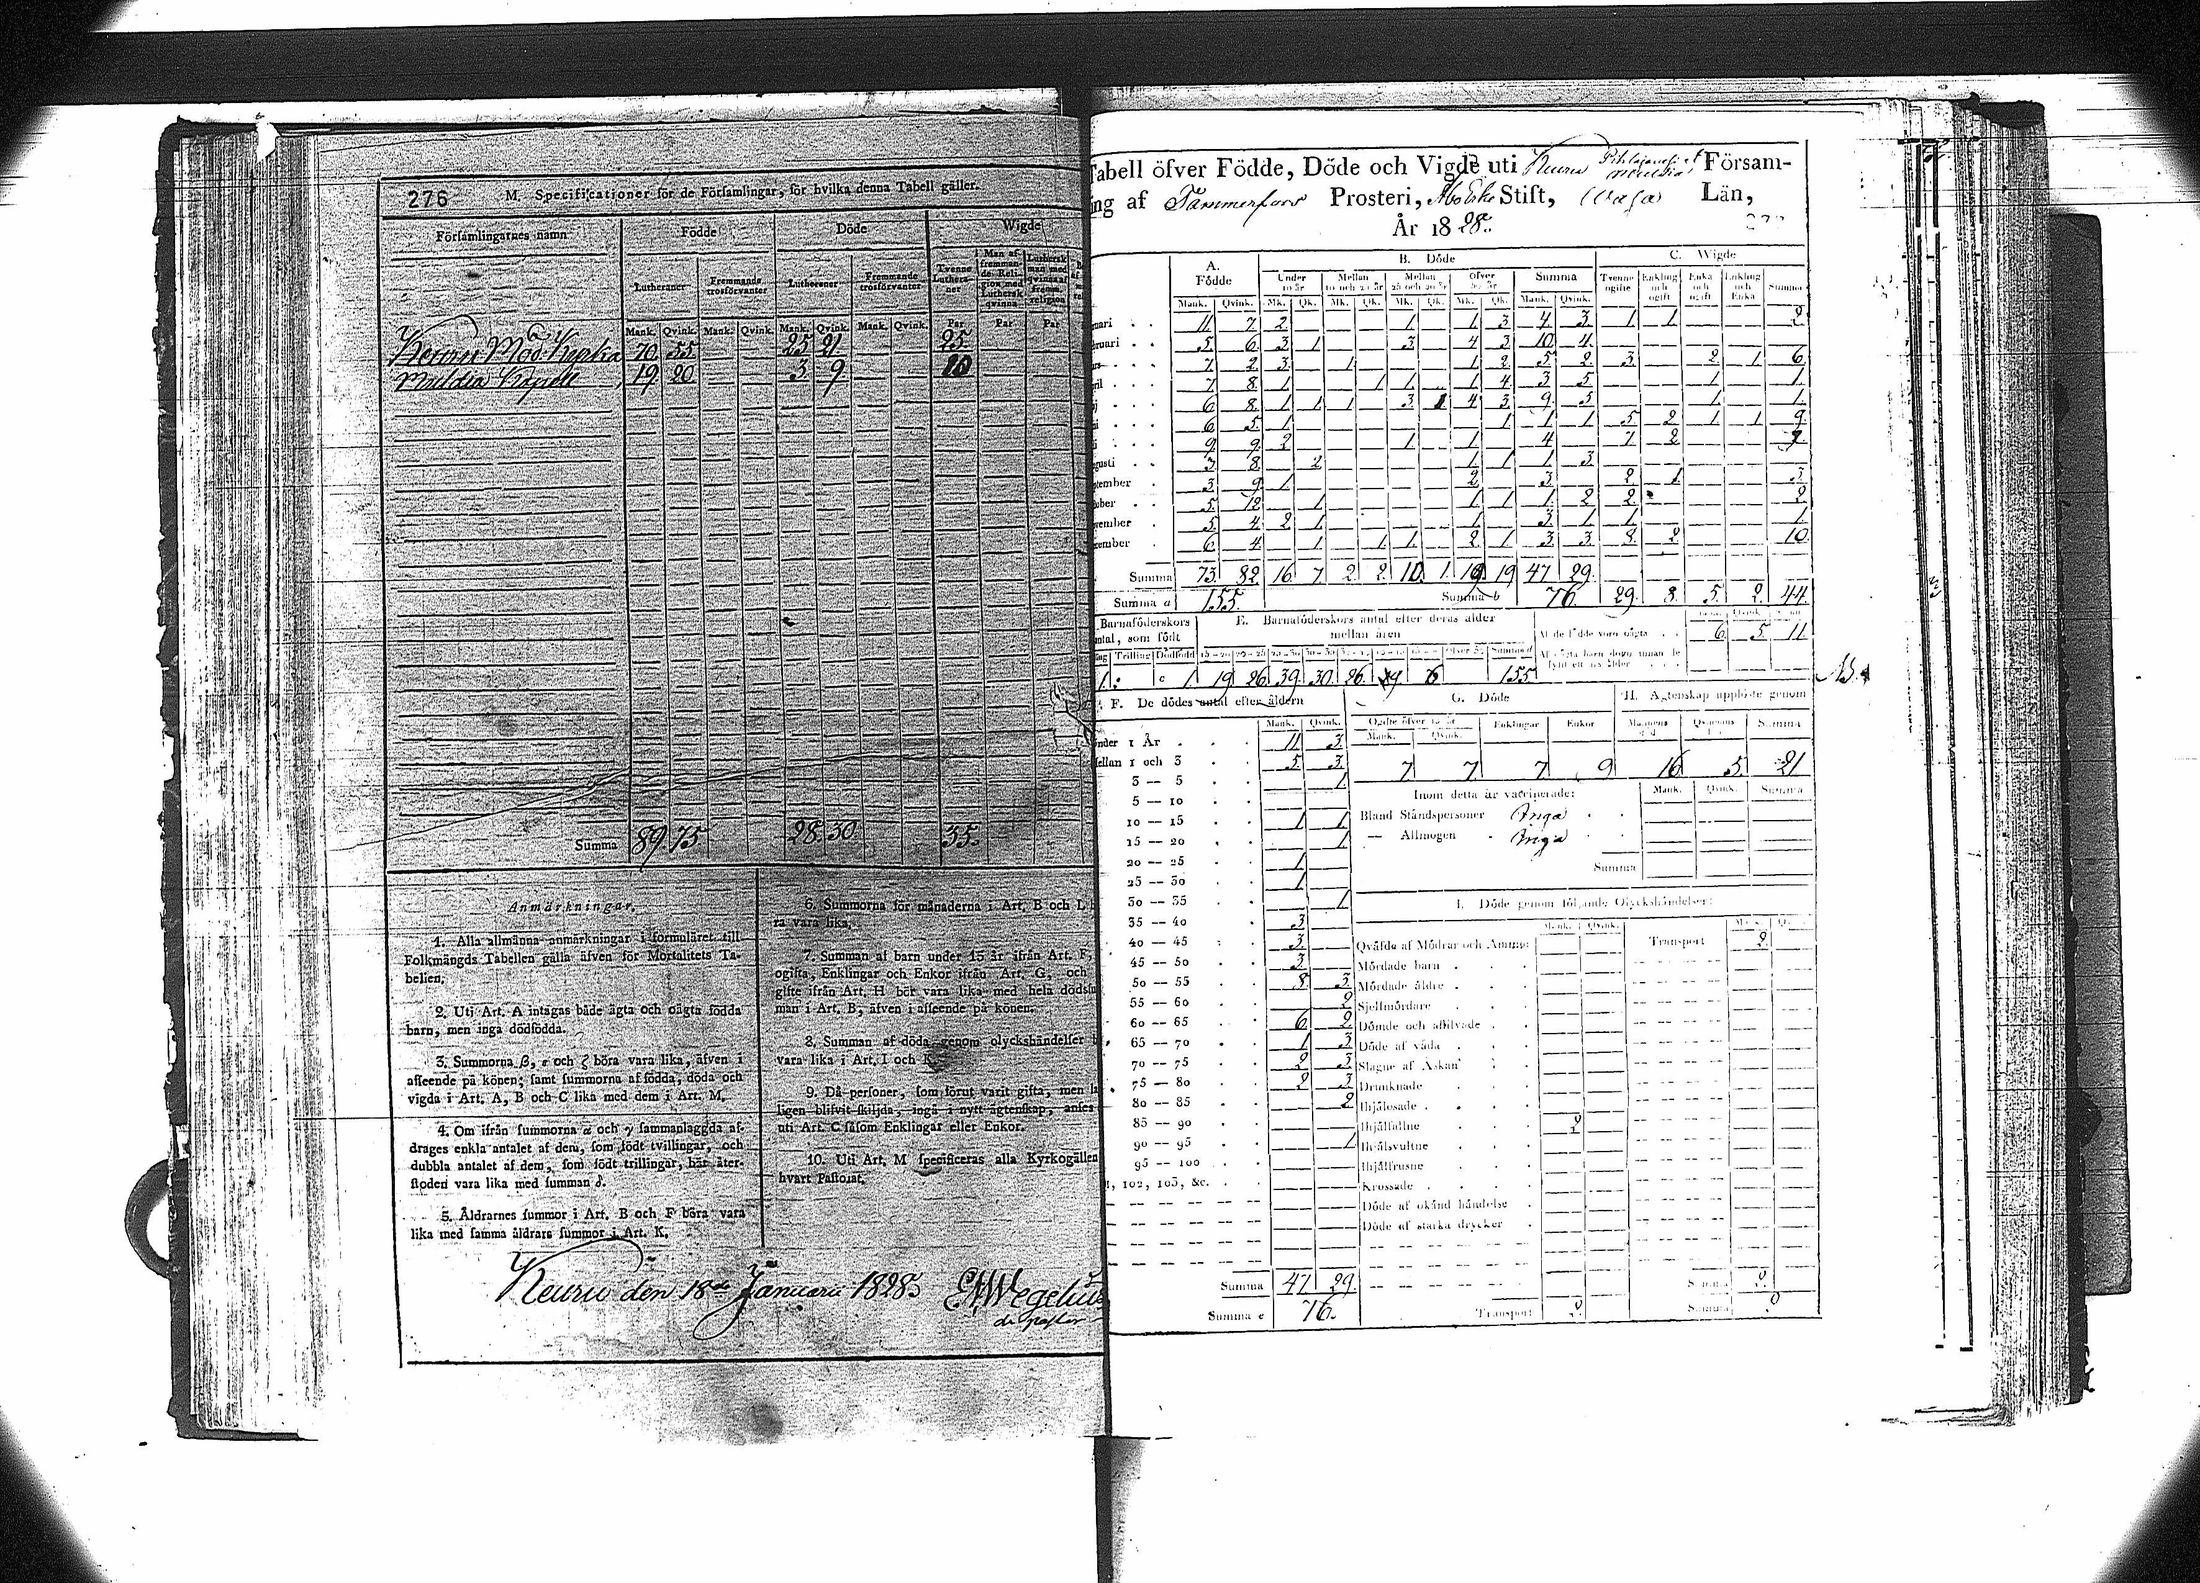 276 M. Specificationer för de Församlingar, för hvilka denna Tabell gäller.
Församlingarnes namn Födde Döde Wigde
Lutheraner Fremmande trosförvanter Lutheraner Fremmande trosförvanter Tvenne Lutheraner Man af fremmande Religion med Luthersk qvinna Luthersk man med qvinna af fremm. religion
Mank. Qvink. Mank. Qvink. Mank. Qvink. Mank. Qvink. Par Par Par
Keuru Mod. Kyrka 70 55 25 21 25
Muldia Kapell 19 20 3 9 10
Summa 89 75 28 30 35
Anmärkningar.
1. Alla allmänna anmärkningar i formuläret till
Folkmängds Tabellen gälla äfven för Mortalitets Ta-
bellen.
2. Uti Art. A intagas både ägta och oägta födda
barn, men inga dödfödda.
3. Summorna β, ε och ζ böra vara lika, äfven i
afseende på könen; samt summorna af födda, döda och
vigda i Art. A, B och C lika med dem i Art. M.
4. Om ifrån summorna α och γ sammanlaggda af-
drages enkla antalet af dem, som födt tvillingar, och
dubbla antalet af dem, som födt trillingar, bär åter-
stoden vara lika med summan δ.
5. Åldrarnes summor i Art. B och F böra vara
lika med samma åldrars summor i Art. K.
6. Summorna för månaderna i Art. B och L
ra vara lika.
7. Summan af barn under 15 år ifrån Art. F,
ogifta, Enklingar och Enkor ifrån Art. G, och
gifte ifrån Art. H bör vara lika med hela dödssu
man i Art. B, äfven i afseende på könen.
8. Summan af döda genom olyckshändelser b
vara lika i Art. I och K.
9. Då personer, som förut varit gifta, men la
ligen blifvit skiljda, ingå i nytt ägtenskap, anses
uti Art. C såsom Enklingar eller Enkor.
10. Uti Art. M specificeras alla Kyrkogällen
hvart Pastorat.
Keuru den 18de Januarii 1828
Tabell öfver Födde, Döde och Vigde uti Keuru Försam-
ing af Tammerfors Prosteri, Åbo Erke Stift, Wasa Län,
År 1828.
A. Födde B. Döde C. Wigde
Under 10 år Mellan 10 och 25 år Mellan 25 och 50 år Öfver 50 år Summa Tvenne ogifte Enkling och ogift Enka och ogift Enkling och Enka Summa
Mank. Qvink. Mk. Qk. Mk. Qk. Mk. Qk. Mk. Qk. Mank. Qvink.
nuari 11 7 2 1 1 3 4 3 1 1 2
bruari 5 6 3 1 3 4 3 10 4
ars 7 2 3 1 1 2 5 2 3 2 1 6
pril 7 8 1 1 1 1 4 3 5 1 1
j 6 8 1 1 1 3 1 4 3 9 5 1 1
ni 6 5 1 1 1 1 5 2 1 1 9
li 9 9 2 1 1 4 7 2 9
gusti 3 8 2 1 1 1 3
ptember 3 9 1 2 3 2 1 3
tober 5 12 1 1 1 1 2 2 2
vember 5 4 2 1 1 3 1 1 1
cember 6 4 1 1 1 2 1 3 3 8 2 10
Summa 73 82 16 7 2 2 10 1 19 19 47 29
Summa a 155 Summa b 76 29 8 5 2 44
Barnaföderskors
antal, som födt
Trilling Dödfödd
E. Barnaföderskors antal efter deras ålder
mellan åren
Summa d
1 1 19 26 39 30 26 9 6 155
Af de födde voro oägta 6 5 11
F. De dödes antal efter åldern
Mank. Qvink.
Under 1 År 11 3
Mellan 1 och 3 5 3
3 — 5 1
5 — 10
10 — 15 1 1
15 — 20 1
20 — 25 1
25 — 30 1
30 — 35 1
35 — 40 3
40 — 45 3
45 — 50 3
50 — 55 8 3
55 — 60 2
60 — 65 6 2
65 — 70 1 3
70 — 75 2 3
75 — 80 2 3
80 — 85 2
85 — 90
90 — 95 1
95 — 100
102, 103, &c.
Summa 47 29
Summa e 76
G. Döde
Ogifte öfver 15 år Enklingar Enkor
Mank. Qvink.
7 7 7 9
H. Ägtenskap upplöste genom
Mannens död Qvinnans död Summa
16 5 21
Inom detta år vaccinerade: Mank. Qvink. Summa
Bland Ståndspersoner Inga
— Allmogen Inga
Summa
I. Döde genom följande Olyckshändelser:
Mank. Qvink.
Qväfde af Mödrar och Ammor
Mördade barn
Mördade äldre
Sjelfmördare
Dömde och aflifvade
Döde af våda
Slagne af Åskan
Drunknade
Ihjälosade
Ihjälfallne 2
Ihjälsvultne
Ihjälfrusne
Krossade
Döde af okänd händelse
Döde af starka drycker
Transport 2
Transport 2
Summa 2
Summa 2